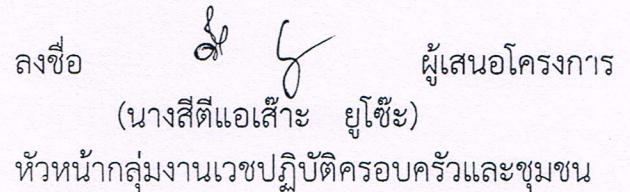 ลงชื่อ ผู้เสนอโครงการ
(นางสีตีแอเส๊าะ ยูโซ๊ะ)
หัวหน้ากลุ่มงานเวชปฏิบัติครอบครัวและชุมชน